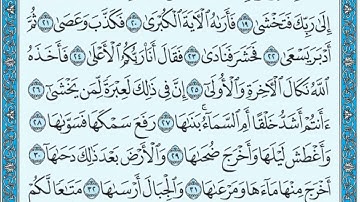 إِلَىٰ رَبِّكَ فَتَخْشَىٰ ١٩ فَأَرَىٰهُ ٱلْـَٔايَةَ ٱلْكُبْرَىٰ ٢٠ فَكَذَّبَ وَعَصَىٰ ٢١ ثُمَّ
أَدْبَرَ يَسْعَىٰ ٢٢ فَحَشَرَ فَنَادَىٰ ٢٣ فَقَالَ أَنَا۠ رَبُّكُمُ ٱلْأَعْلَىٰ ٢٤ فَأَخَذَهُ
ٱللَّهُ نَكَالَ ٱلْـَٔاخِرَةِ وَٱلْأُولَىٰٓ ٢٥ إِنَّ فِى ذَٰلِكَ لَعِبْرَةً لِّمَن يَخْشَىٰٓ ٢٦
ءَأَنتُمْ أَشَدُّ خَلْقًا أَمِ ٱلسَّمَآءُ ۚ بَنَىٰهَا ٢٧ رَفَعَ سَمْكَهَا فَسَوَّىٰهَا ٢٨
وَأَغْطَشَ لَيْلَهَا وَأَخْرَجَ ضُحَىٰهَا ٢٩ وَٱلْأَرْضَ بَعْدَ ذَٰلِكَ دَحَىٰهَآ ٣٠
أَخْرَجَ مِنْهَا مَآءَهَا وَمَرْعَىٰهَا ٣١ وَٱلْجِبَالَ أَرْسَىٰهَا ٣٢ مَتَٰعًا لَّكُمْ